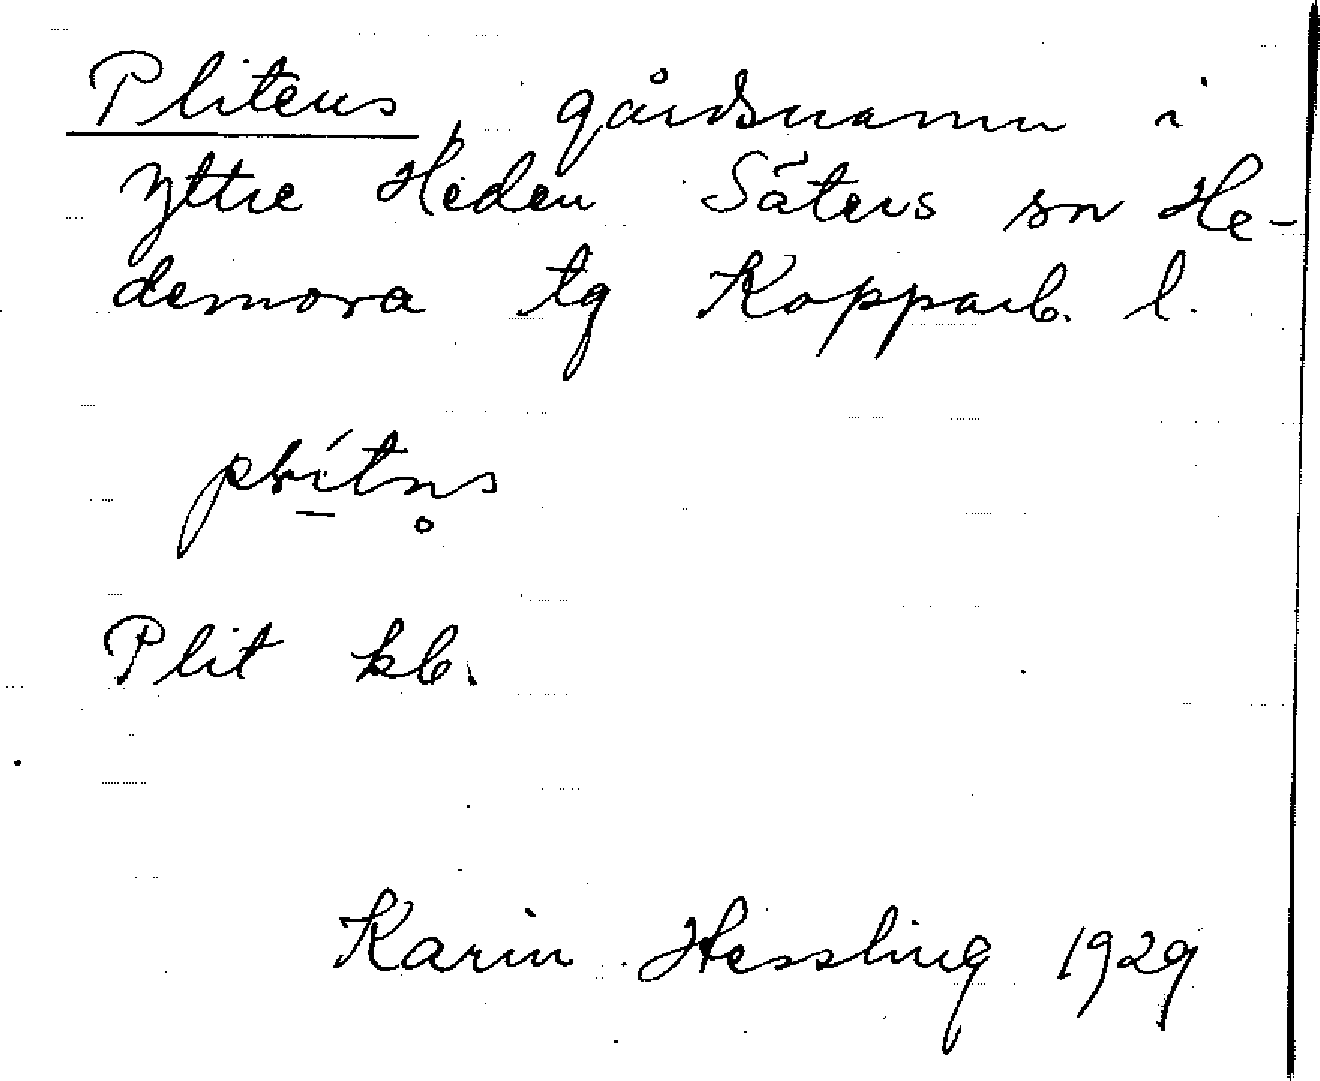 Plitens, gårdsnamn i
Yttre Heden Säters sn He-
demora tg Kopparb. l.
plítn̥s
Plit kb.
Karin Hessling 1929